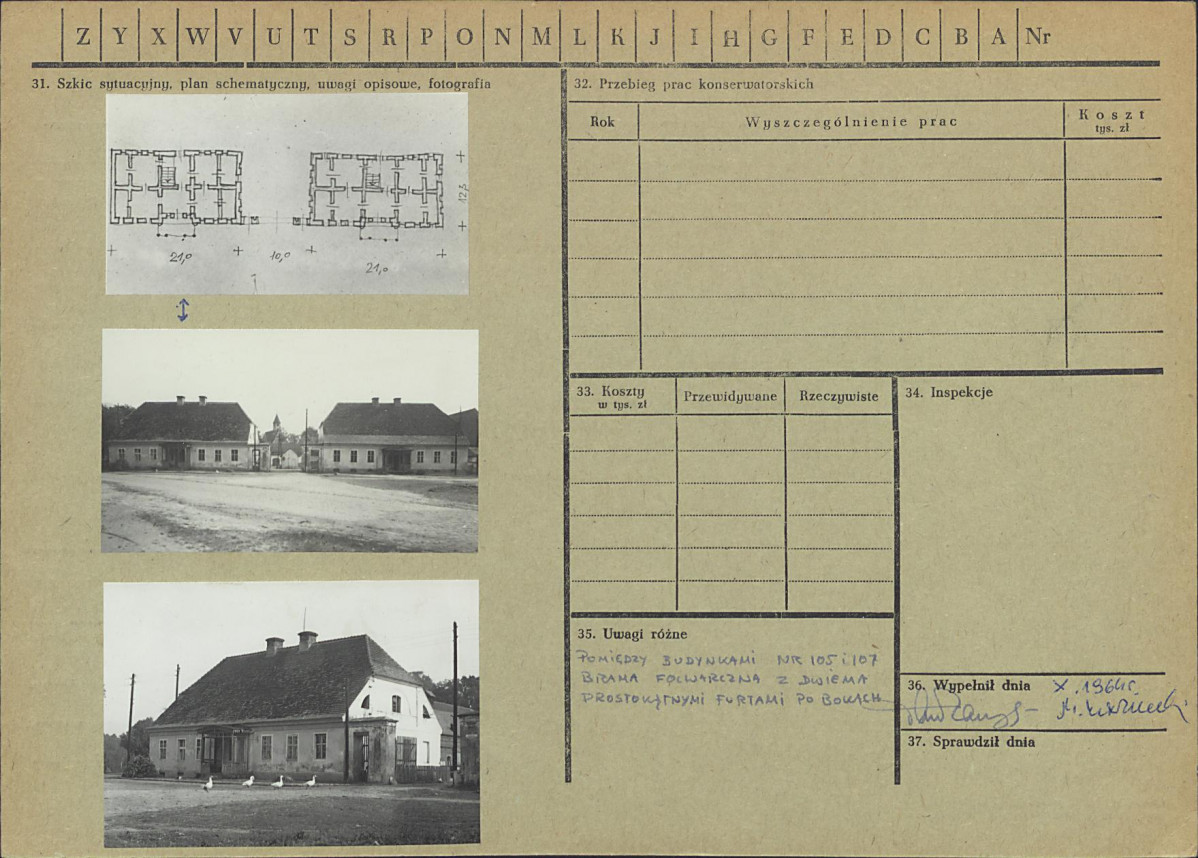 Z Y X W V U T S R P O N M L K J I H G F E D C B A Nr
31. Szkic sytuacyjny, plan schematyczny, uwagi opisowe, fotografia
21,0
10,0
21,0
12,3
32. Przebieg prac konserwatorskich
Rok
Wyszczególnienie prac
Koszt
tys. zł
33. Koszty
w tys. zł
Przewidywane
Rzeczywiste
34. Inspekcje
35. Uwagi różne
POMIĘDZY BUDYNKAMI NR 105 i 107
BRAMA FOLWARCZNA Z DWIEMA
PROSTOKĄTNYMI FURTAMI PO BOKACH
36. Wypełnił dnia X.1964r.
37. Sprawdził dnia